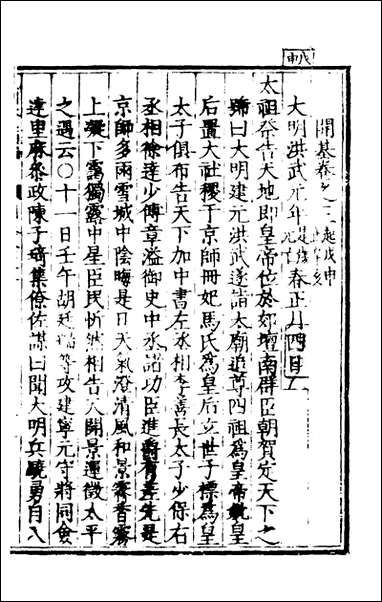 戊申
開基卷之二起戊申
大明洪武元年 春正月四日
太祖祭告天地即皇帝位於郊壇南群臣朝賀定天下之
號曰大明建元洪武遂詣太廟追尊四祖爲皇帝
后置大社稷于京師冊妃馬氏爲皇后立世子標爲皇
太子俱布告天下加中書左丞相李善長太子少保右
丞相徐達少傅章溢御史中丞諸功臣進爵有差先是
京師多雨雪城中陰晦是日天氣澄清風和景霽香霧
上凝下靄獨露中星臣民忻然相告以開景運徵太平
之遇云〇十一日壬午胡廷瑞等攻建寧元守將同僉
達里麻參政陳子琦集僚佐謀曰聞大明兵驍勇自入